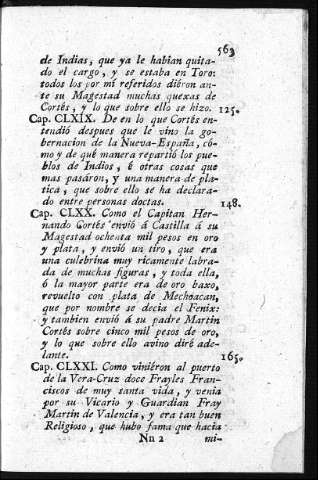 563
de Indias, que ya le habian quita-
do el cargo, y se estaba en Toro:
todos los por mí referidos diéron an-
te su Magestad muchas quexas de
Cortés, y lo que sobre ello se hizo. 125.
Cap. CLXIX. De en lo que Cortés en-
tendió despues que le vino la go-
bernacion de la Nueva-España, có-
mo y de qué manera repartió los pue-
blos de Indios, é otras cosas que
mas pasáron, y una manera de plá-
tica, que sobre ello se ha declara-
do entre personas doctas. 148.
Cap. CLXX. Como el Capitan Her-
nando Cortés envió á Castilla á su
Magestad ochenta mil pesos en oro
y plata, y envió un tiro, que era
una culebrina muy ricamente labra-
da de muchas figuras, y toda ella,
ó la mayor parte era de oro baxo,
revuelto con plata de Mechoacan,
que por nombre se decia el Fenix:
y tambien envió á su padre Martin
Cortés sobre cinco mil pesos de oro,
y lo que sobre ello avino diré ade-
lante. 165.
Cap. CLXXI. Como viniéron al puerto
de la Vera-Cruz doce Frayles Fran-
ciscos de muy santa vida, y venia
por su Vicario y Guardian Fray
Martin de Valencia, y era tan buen
Religioso, que hubo fama que hacia
Nn 2 mi-